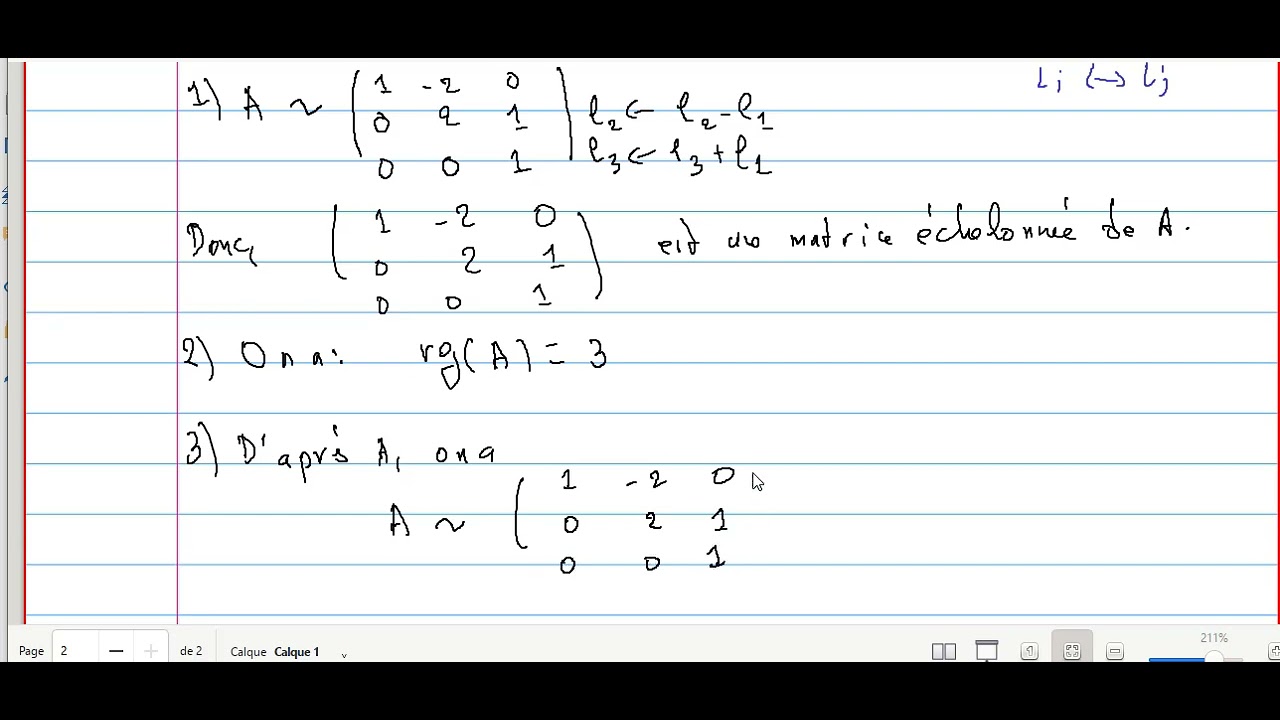 Lj ↔ Lj
1) A ~ ( 1 -2 0 ) 
0 2 1 l2 ← l2 - l1
0 0 1 l3 ← l3 + l1
Donc ( 1 -2 0 )
0 2 1 est un matrice échelonnée de A.
0 0 1
2) On a: rg(A) = 3
3) D'après A, on a
1 -2 0
A ~ ( 0 2 1
0 0 1
Page 2 de 2 Calque Calque 1 211%